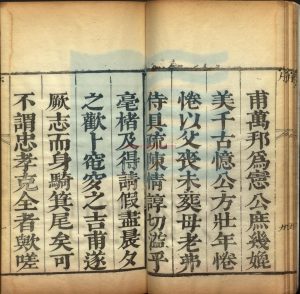 甫萬邦爲憲公庶幾媲
美千古憶公方壯年惓
惓以父喪未葬母老弗
侍具疏陳情諄切溢乎
毫楮及得請假葢晨夕
之歡卜窀穸之吉甫遂
厥志而身騎箕尾矣可
不謂忠孝克全者歟嗟